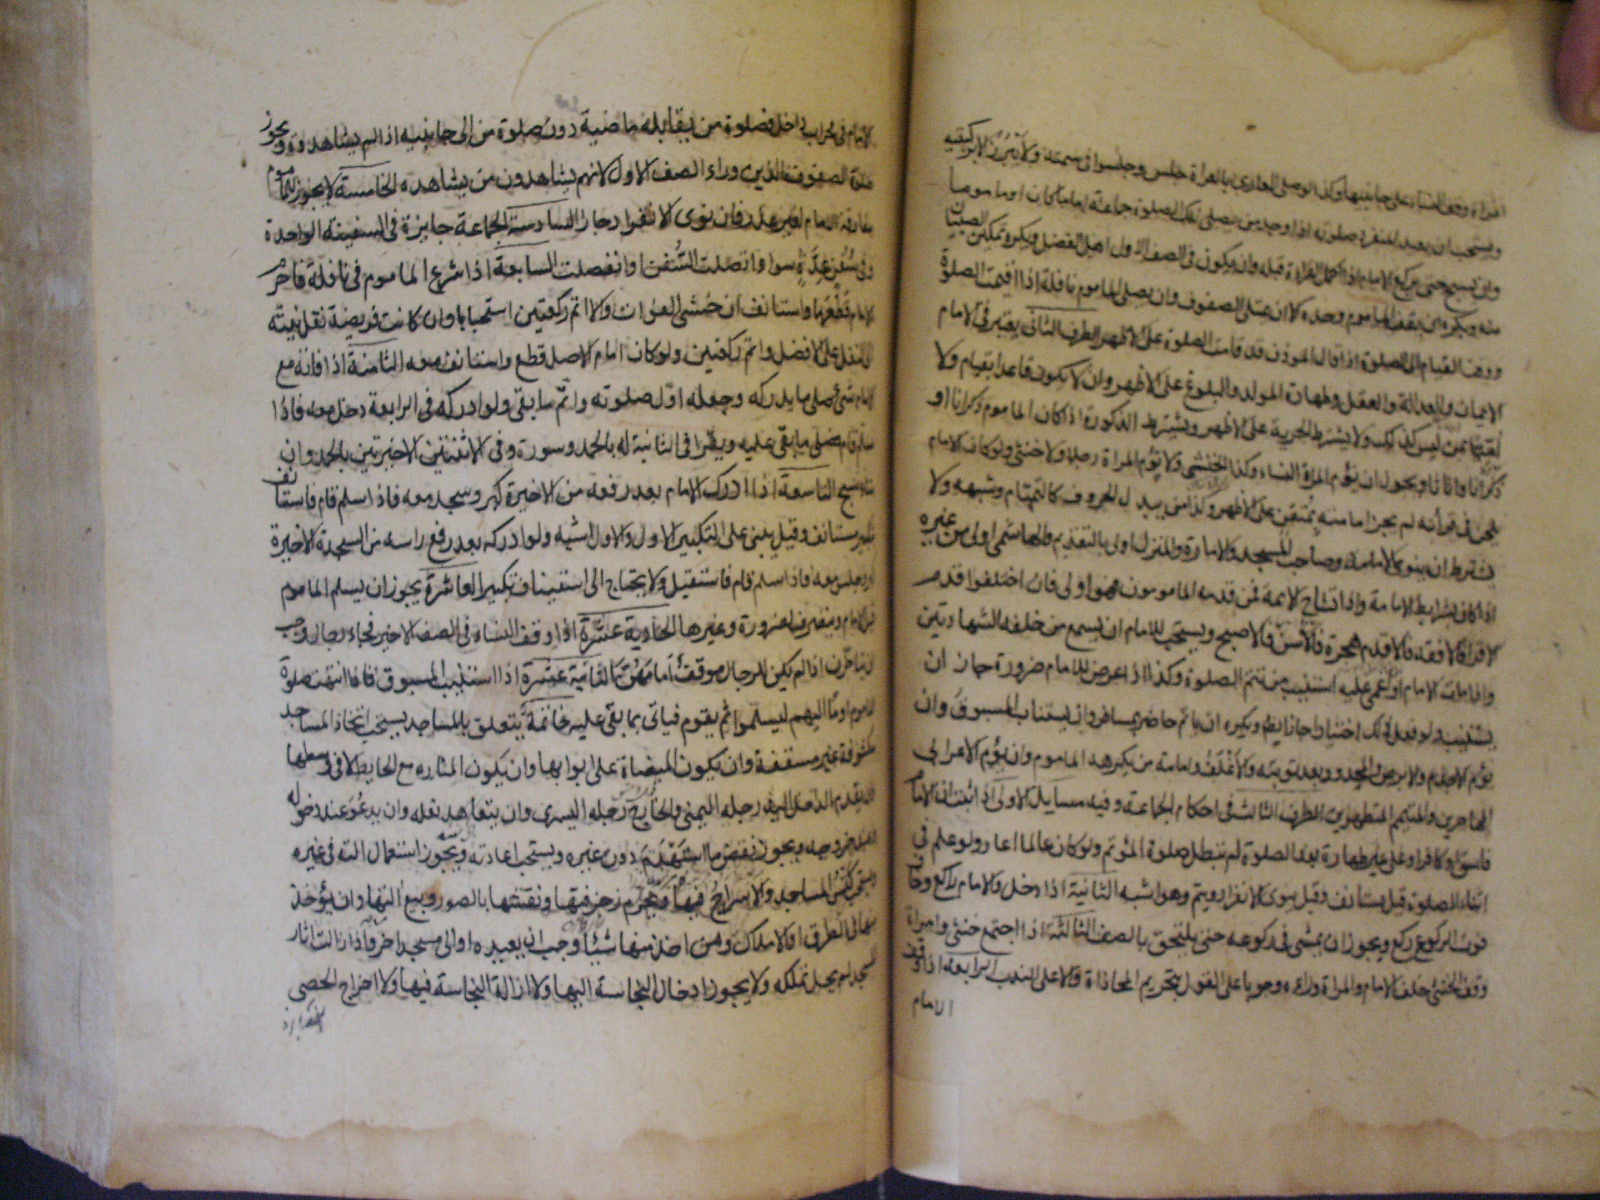 امراة وقف النساء على جانبيها وكذا لو صلى العارى بالعراة جلس وجلسوا فى سمته ولا يبرز الا بركبتيه
ويستحب ان يعيد المنفرد صلوته اذا وجد من يصلى تلك الصلوة جماعة اماما كان او ماموما
وان يسبح حتى يركع الامام اذا اكمل القراءة قبله وان يكون فى الصف الاول اهل الفضل ويكره تمكين الصبيان
منه ويكره ان يقف الماموم وحده الا ان يمتلى الصفوف وان يصلى الماموم نافلة اذا اقيمت الصلوة
ووقت القيام الى الصلوة اذا قال الموذن قد قامت الصلوة على الاظهر الطرف الثانى يعتبر فى الامام
الايمان والعدالة والعقل وطهارة المولد والبلوغ على الاظهر وان لا يكون قاعدا بقيام ولا
اميا بمن ليس كذلك ولا يشترط الحرية على الاظهر ويشترط الذكورة اذا كان الماموم ذكرانا او
ذكرانا واناثا ويجوز ان يؤم المراة النساء وكذا الخنثى ولا يؤم المراة رجلا ولا خنثى ولو كان الامام
يلحن فى قرأته لم يجز امامته بمتقن على الاظهر وكذا من يبدل الحروف كالتمتام وشبهه ولا
يشترط ان ينوى الامامة وصاحب المسجد والامارة والمنزل اولى بالتقديم والهاشمى اولى من غيره
اذا كان بشرايط الامامة واذا تشاح الايمة فمن قدمه المامومون فهو اولى فان اختلفوا قدم
الاقرا فالافقه فالاقدم هجرة فالاسن فالاصبح ويستحب للامام ان يسمع من خلفه الشهادتين
واذا مات الامام او اغمى عليه استنيب من يتم الصلوة وكذا اذا عرض للامام ضرورة جاز ان
يستنيب ولو فعل ذلك اختيارا جاز ايضا ويكره ان ياتم حاضر بمسافر وان يستناب المسبوق وان
يؤم الاجذم والابرص والمحدود بعد توبته والاغلف وامامة من يكرهه الماموم وان يؤم الاعرابى
المهاجرين والمتيمم المتطهرين الطرف الثالث فى احكام الجماعة وفيه مسايل الاولى اذا ثبت ان الامام
فاسق او كافر او على غير طهارة بعد الصلوة لم تبطل صلوة المؤتم ولو كان عالما اعاد ولو علم فى
اثناء الصلوة قيل يستانف وقيل ينوى الانفراد ويتم وهو اشبه الثانية اذا دخل والامام راكع وخاف
فوت الركوع ركع ويجوز ان يمشى فى ركوعه حتى يلتحق بالصف الثالثة اذا اجتمع خنثى وامراة
وقف الخنثى خلف الامام والمراة وراءه وجوبا على القول بتحريم المحاذاة والا على الندب الرابعة اذا وقف
الامام
الامام فى محراب داخل فصلوة من يقابله ماضية دون صلوة من الى جانبيه اذا لم يشاهدوه ويجوز
صلوة الصفوف الذين وراء الصف الاول لانهم يشاهدون من يشاهده الخامسة لا يجوز للماموم
مفارقة الامام لغير عذر فان نوى الانفراد جاز السادسة الجماعة جايزة فى السفينة الواحدة
وفى سفن عدة سوا واتصلت السفن او انفصلت السابعة اذا شرع الماموم فى نافلة فاحرم
الامام قطعها واستانف ان خشى الفوات والا اتم ركعتين استحبابا وان كانت فريضة نقل نيته
الى النفل على الافضل واتم ركعتين ولو كان امام الاصل قطع واستانف معه الثامنة اذا فاته مع
الامام شئ صلى ما يدركه وجعله اول صلوته واتم ما بقى ولو ادركه فى الرابعة دخل معه فاذا
سلم قام فصلى ما بقى عليه ويقرا فى الثانية له بالحمد وسورة وفى الاثنتين الاخيرتين بالحمد وان
شاء سبح التاسعة اذا ادرك الامام بعد رفعه من الاخيرة كبر وسجد معه فاذا سلم قام فاستانف
بتكبير مستانف وقيل يبنى على التكبير الاول والاول اشبه ولو ادركه بعد رفع راسه من السجدة الاخيرة
كبر وجلس معه فاذا سلم قام فاستقبل ولا يحتاج الى استيناف تكبير العاشرة يجوز ان يسلم الماموم
قبل الامام وينصرف لضرورة وغيرها الحادية عشرة اذا وقف النساء فى الصف الاخير فجاء رجال وجب
ان يتاخرن اذا لم يكن للرجال موقف امامهن الثانية عشرة اذا استنيب المسبوق فاذا انتهت صلوة
الماموم اوما اليهم ليسلموا ثم يقوم فياتى بما بقى عليه خاتمة يتعلق بالمساجد يستحب اتخاذ المساجد
مكشوفة غير مسقفة وان يكون الميضاة على ابوابها وان يكون المناره مع الحايط لا فى وسطها
وان يقدم الداخل اليها رجله اليمنى والخارج رجله اليسرى وان يتعاهد نعله وان يدعو عند دخوله
وعند خروجه ويجوز نقض ما استهدم دون غيره ويستحب اعادته ويجوز استعمال الته فى غيره
ويستحب كنس المساجد والاسراج فيها ويحرم زخرفتها ونقشها بالصور وبيع التها وان يؤخذ
منها فى الطرق او الاملاك ومن اخذ منها شيئا وجب ان يعيده او الى مسجد اخر واذا زالت اثار
المسجد لم يحل تملكه ولا يجوز ادخال النجاسة اليها ولا ازالة النجاسة فيها ولا اخراج الحصى